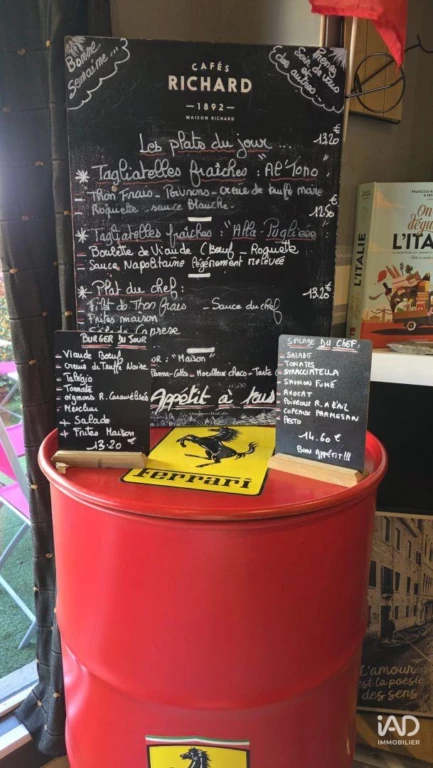 Bonne
Semaine...
Prenez
Soin de vous
et des
autres
CAFÉS
RICHARD
— 1892 —
MAISON RICHARD
Les plats du jour...
* Tagliatelles fraîches : "Al Tono" 13.20€
Thon Frais - Poivrons - crème de truffe noire
Roquette - sauce Blanche.
* Tagliatelles fraîches : "Alla Pugliese" 12.80€
Boulette de Viande (Bœuf - Roquette
Sauce Napolitaine légèrement relevée
* Plat du chef : 13.20€
Filet de Thon frais - Sauce du chef
Frites maison
Salade Caprese
: "Maison"
Panna-Cotta - Moelleux choco - Tarte
Appétit à tous
BURGER DU JOUR
- Viande Bœuf
- Crème de Truffe Noire
- Talégio
- Tomate
- oignons R. Caramélisés
- Mesclun
+ Salade
+ Frites Maison
13.20€
SALADE DU CHEF
- SALADE
- TOMATES
- STRACCIATELLA
- SAUMON FUMÉ
- AVOCAT
- POIVRONS R. A L'AIL
- COPEAUX PARMESAN
- PESTO
14.60€
BON APPÉTIT!!!
Ferrari
L'ITALIE
On
L'ITA
L'amour
est la poésie
des sens
iAD
IMMOBILIER